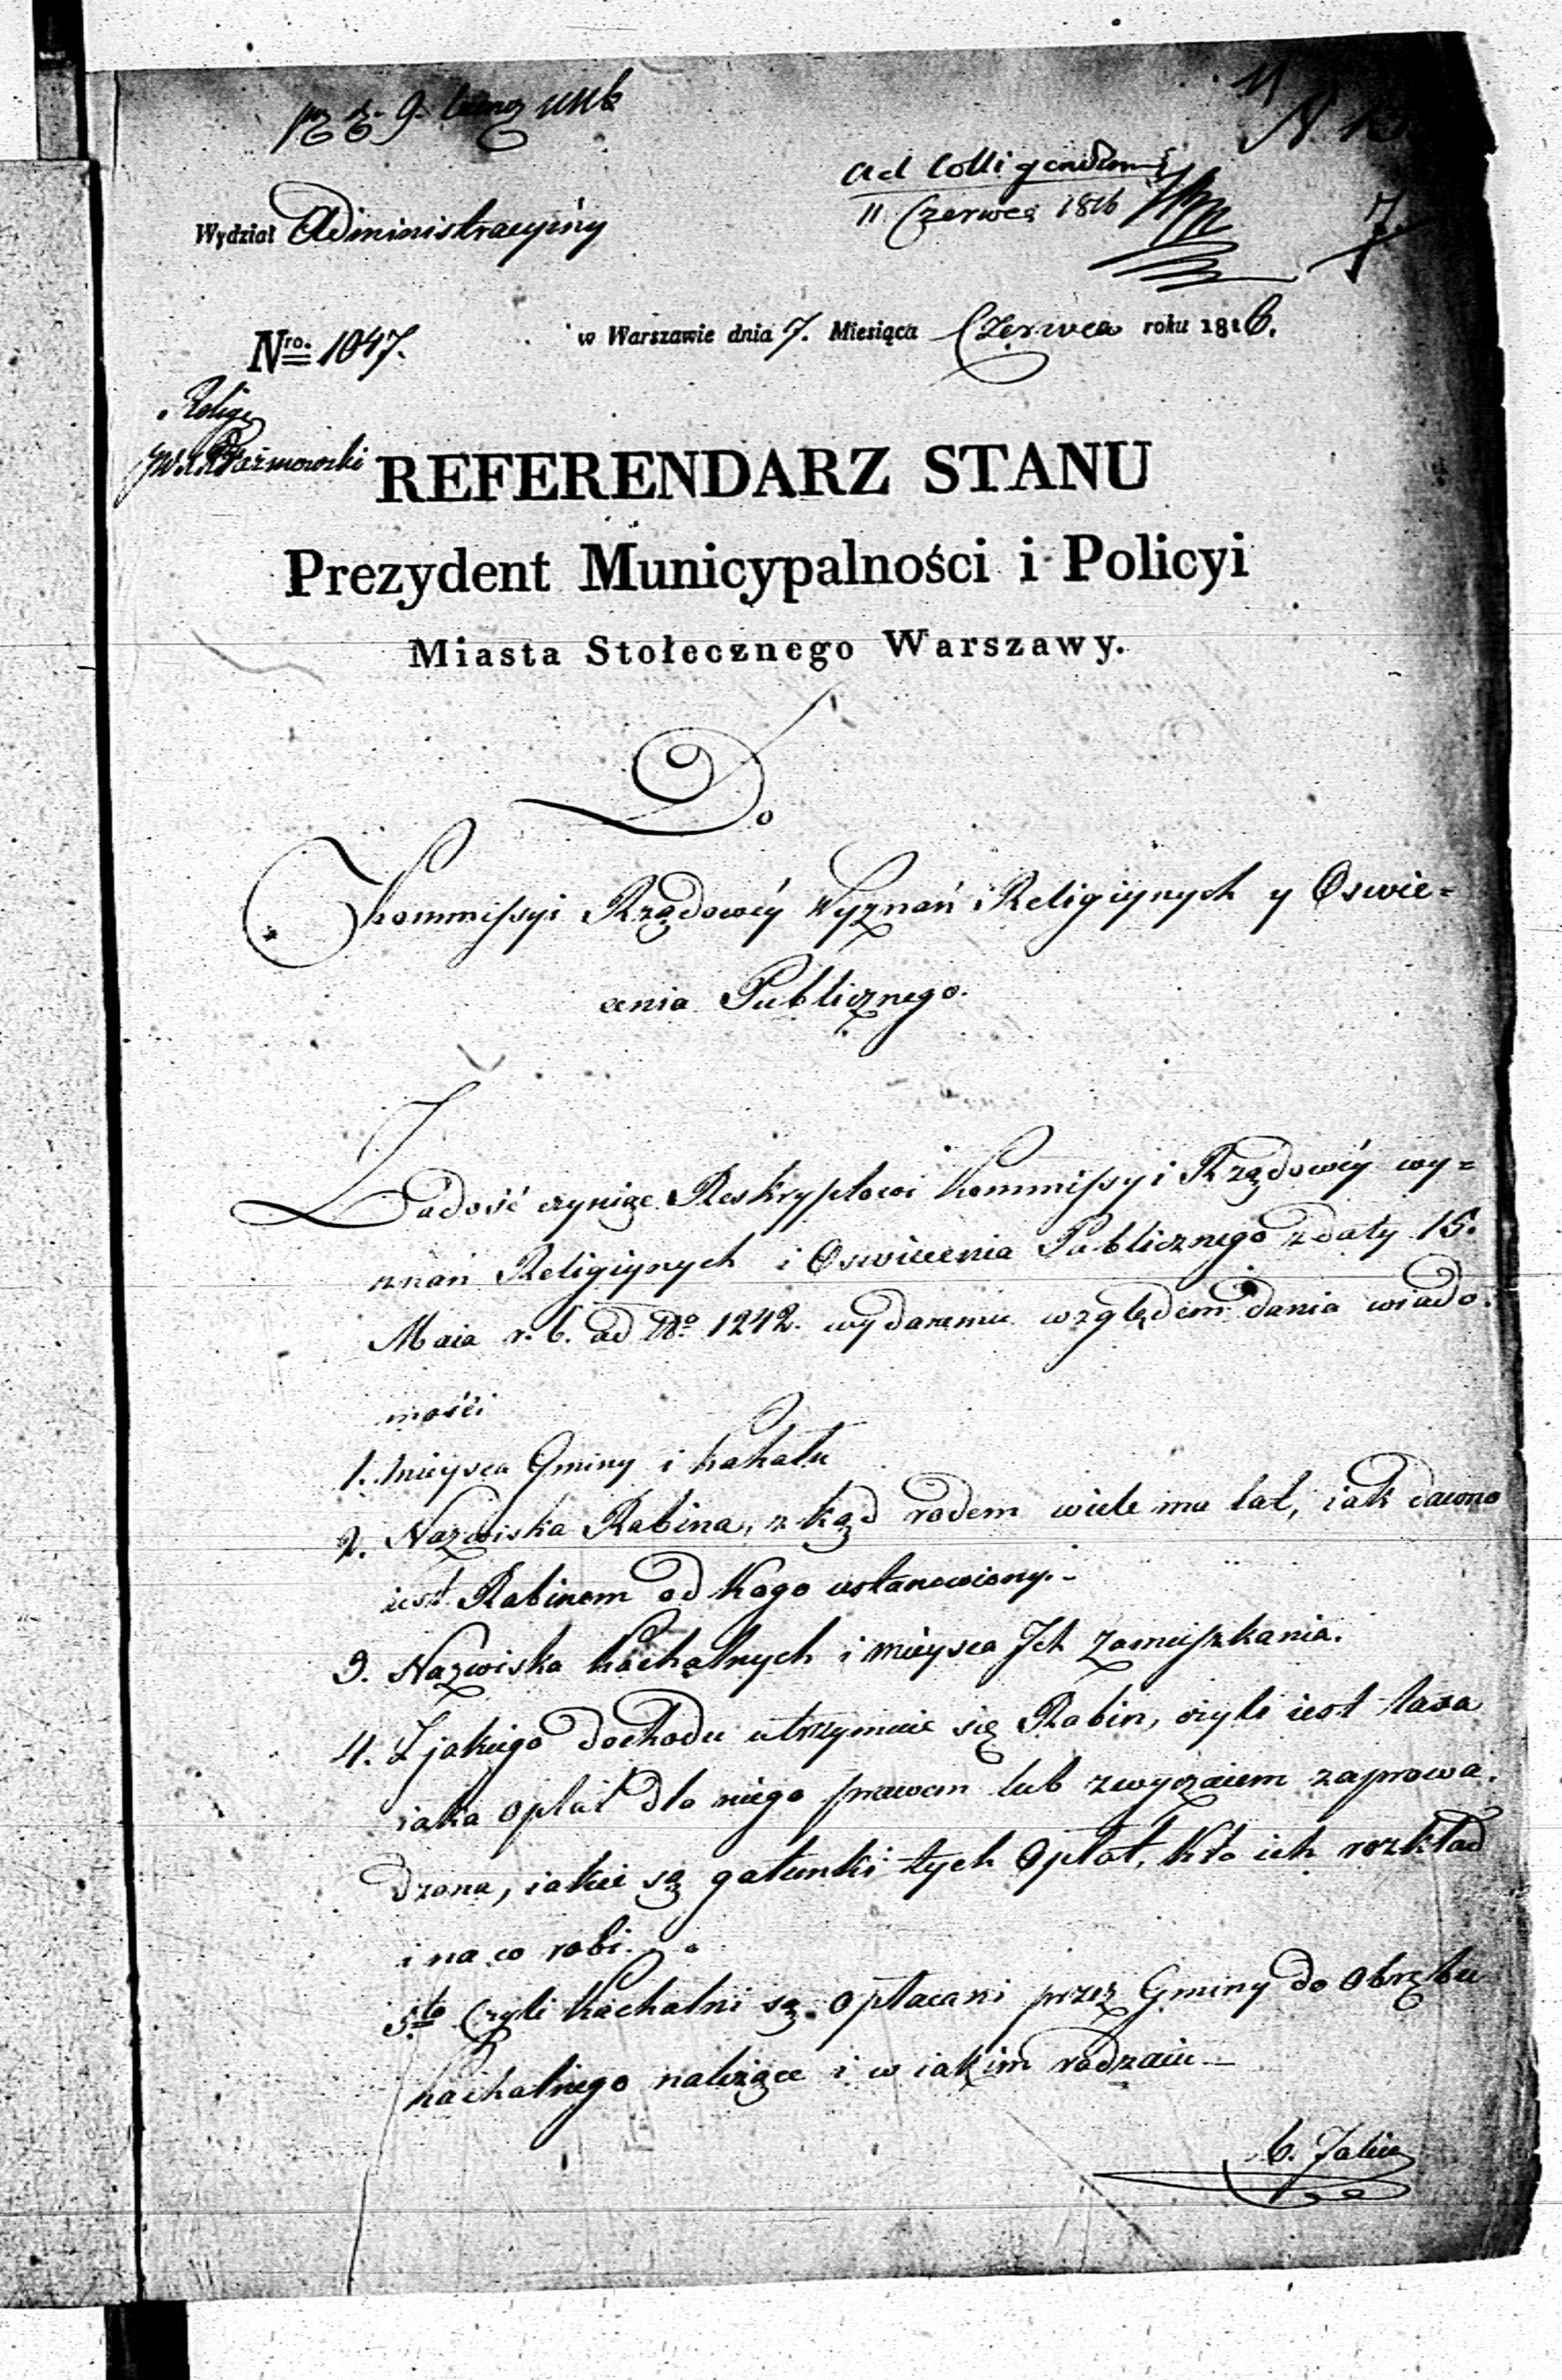 N 13.
ad Colligendum
11 Czerwca 1816
7.
Wydział Administracyiny
Nro. 1047.
w Warszawie dnia 7. Miesiąca Czerwca roku 1816.
Religie
REFERENDARZ STANU
Prezydent Municypalności i Policyi
Miasta Stołecznego Warszawy.
Do
Kommissyi Rządowéy Wyznań Religiynych y Oswie=
cenia Publicznego.
Zadość czyniąc Reskryptowi Kommissyi Rządowéy wy=
znań Religiynych i Oswiecenia Publicznego z daty 15.
Maia r. b. ad Nro 1242. wydanemu względem dania wiado.
mości
1. mieysca Gminy i kahału
2. Nazwiska Rabina, z kąd rodem wiele ma lat, iak dawno
iest Rabinem od kogo ustanowiony.-
3. Nazwiska kachalnych i mieysca Ich zamieszkania.
4. Z jakiego dochodu utrzymuie się Rabin, czyli iest taxa
iaka opłat dla niego prawem lub zwyczaiem zaprowa.
dzona, iakie są gatunki tych Opłat, kto ich rozkład
i na co robi.
5to Czyli kachalni są opłacani przez Gminy do Obrębu
kachalnego należące i w iakim rodzaiu—